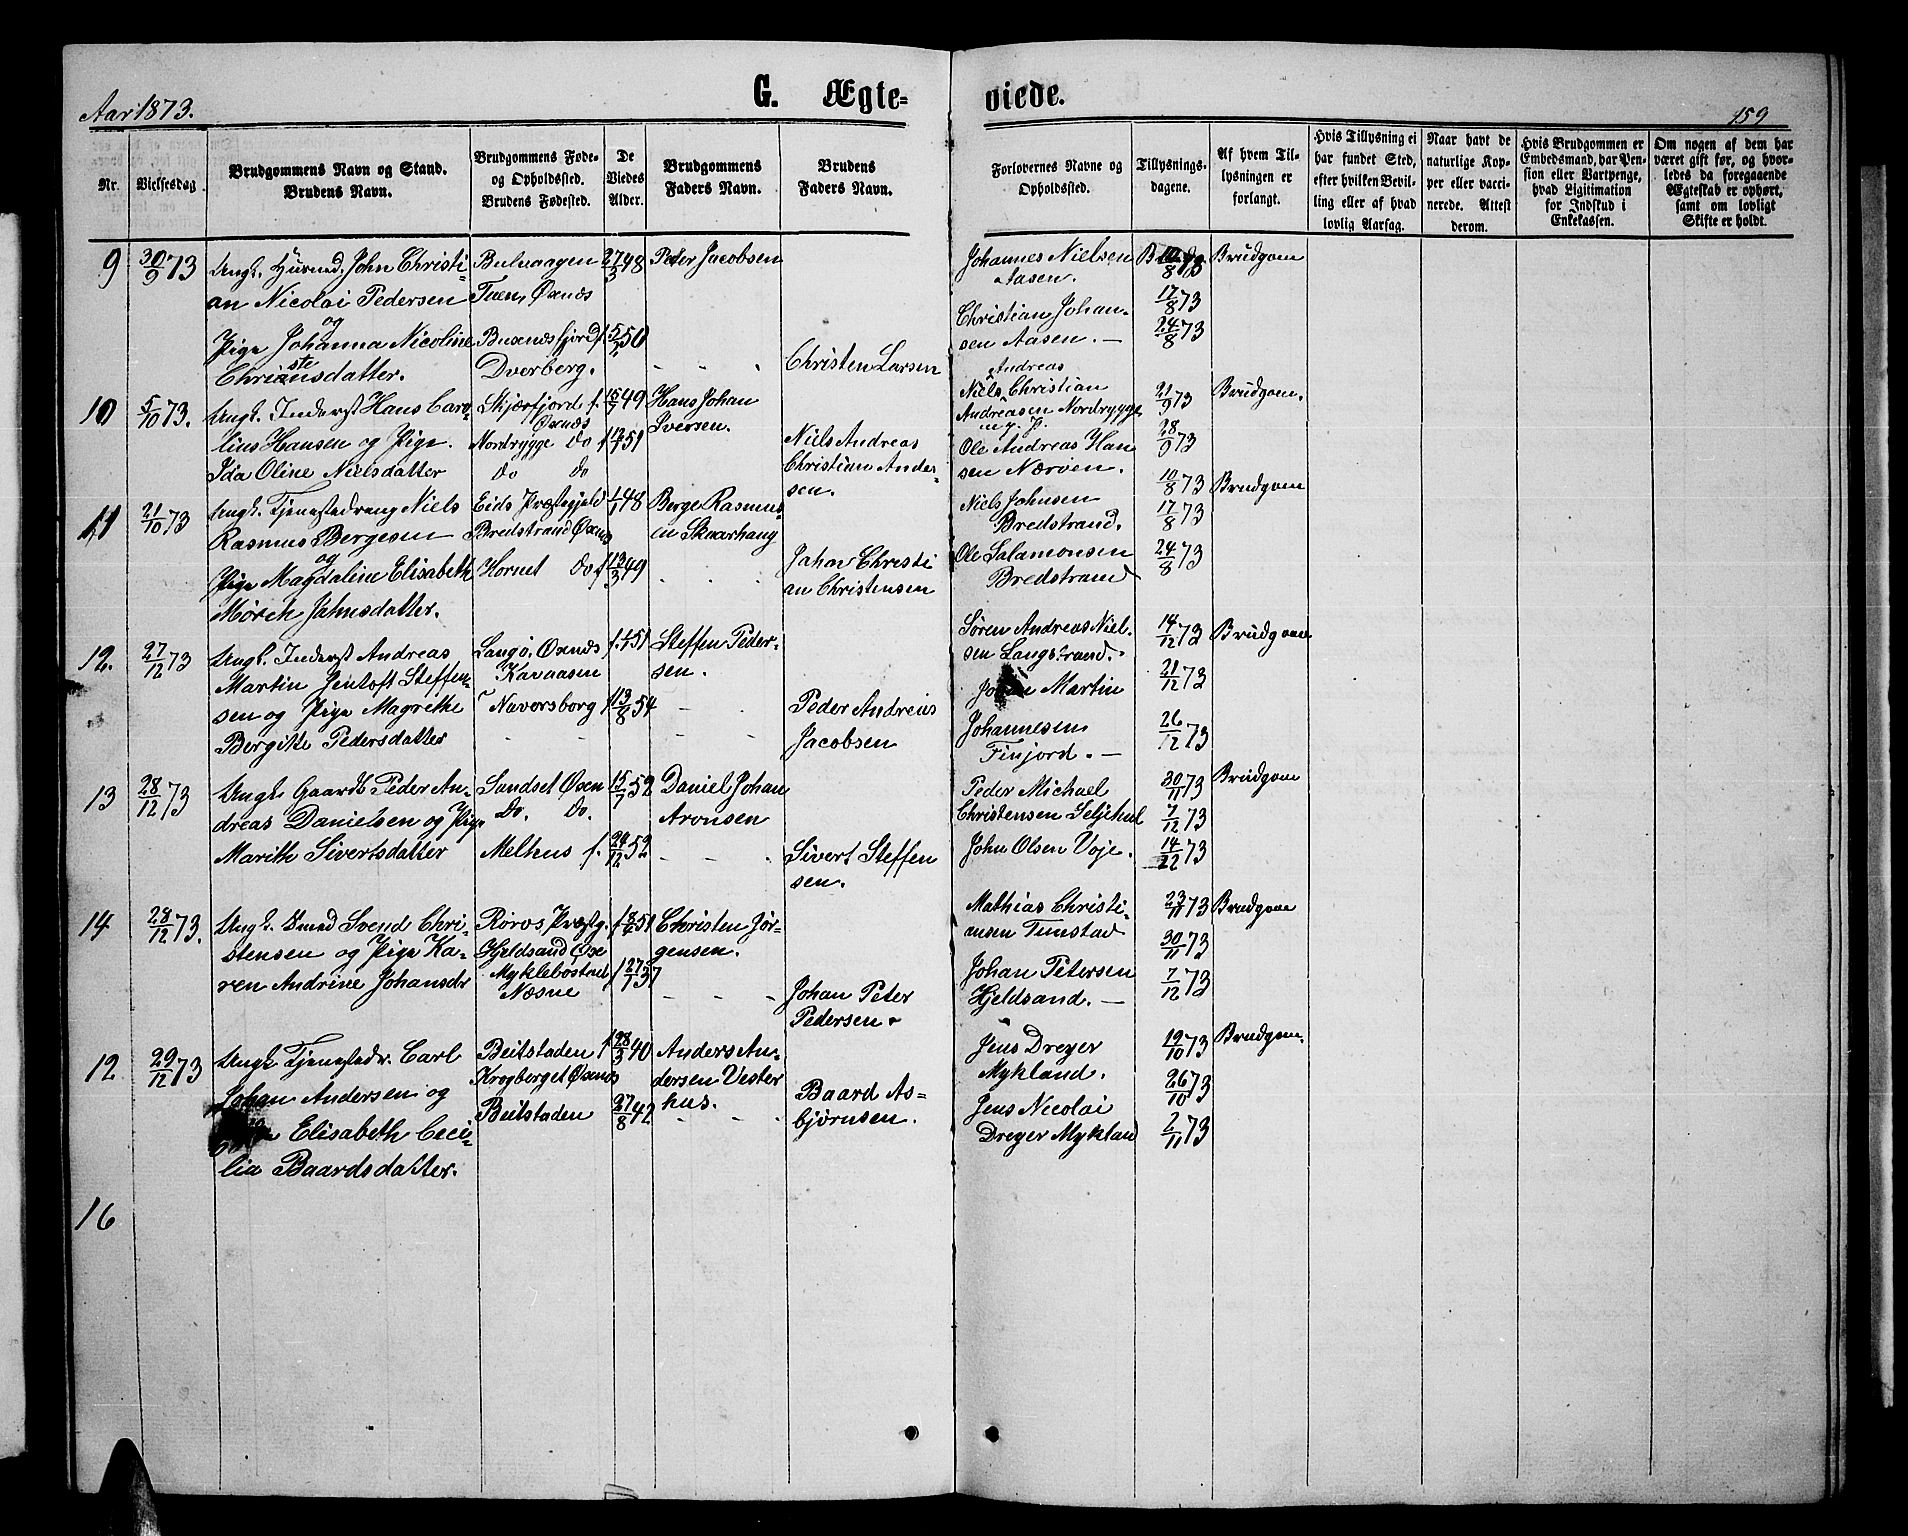 Aar 1873.
G. Ægte-
viede.
159
Nr.
Vielsesdag
Brudgommens Navn og Stand.
Brudens Navn.
Brudgommens Føde-
og Opholdssted.
Brudens Fødested.
De
Viedes
Alder.
Brudgommens
Faders Navn.
Brudens
Faders Navn.
Forlovernes Navne og
Opholdssted.
Tillysnings-
dagene.
Af hvem Til-
lysningen er
forlangt.
Hvis Tillysning ei
har fundet Sted,
efter hvilken Bevil-
ling eller af hvad
lovlig Aarsag.
Naar havt de
naturlige Kop-
per eller vacci-
nerede. Attest
derom.
Hvis Brudgommen er
Embedsmand, har Pen-
sion eller Vartpenge,
hvad Ligitimation
for Indskud i
Enkekassen.
Om nogen af dem har
været gift før, og hvor-
ledes da foregaaende
Ægteskab er ophørt,
samt om lovligt
Skifte er holdt.
9
30/9 73
Ungk. Huusmd. John Christi-
an Nicolai Pedersen
og
Pige Johanna Nicoline
Christensdatter.
Bulvaagen
Tuen, Øxnæs
Buxnæsfjord f.
Dverberg.
27/3 48
5/5 50
Peder Jacobsen
Christen Larsen
Johannes Nielsen
Aasen.
Christian Johan-
sen Aasen. —
10/8 73
17/8 73
24/8 73
Brudgom
10
5/10 73.
Ungk. Inderst Hans Caro-
lius Hansen og Pige
Ida Oline Nielsdatter
Skjærfjord f.
Øxnæs
Nordrygge do
do do
15/7 49
Hans Johan
Iversen.
Niels Andreas
Christian Ander-
sen.
Andreas
Niels Christian
Andreasen Nordrygge
Ole Andreas Han-
sen Nærven.
21/9 73
28/9 73
Brudgom.
11
21/10 73
Ungk. Tjenestedreng Niels
Rasmus Bergesen
og
Pige Magdaline Elisabeth
Mørch Jahnsdatter.
Eids Præstegjeld
Bredstrand Øxnæs
Hornet do f
1/1 48
13/3 49
Berge Rasmus-
en Skaarhaug
Jahan Christi
an Christensen
Niels Johnsen
Bredstrand.
Ole Salamonsen
Bredstrand
10/8 73
17/8 73
24/8 73
Brudgom
12.
27/12 73
Ungk. Inderst Andreas
Martin Jentoft Steffen-
sen og Pige Magrethe
Bergitte Pedersdatter
Langø, Øxnæs
Kavaasen
Navorsborg
f. 1/1 51
f 13/8 54
Steffen Peder-
sen.
Peder Andreas
Jacobsen
Søren Andreas Niel-
sen Langstrand.
Martin
Johannesen
Finjord. —
14/12 73
21/12 73
26/12 73
Brudgom
13
28/12 73
Ungk. Gaardb Peder An-
dreas Danielsen og Pige
Marith Sivertsdatter
Sandset Øxen
Do. Do.
Melhus f.
15/7 52
24/12 52
Daniel Johan
Aronsen
Sivert Steffen
sen.
Peder Michael
Christensen Seljehul
John Olsen Voje.
30/11 73
7/12 73
14/12 73
Brudgom
14
28/12 73.
Ungk. Smed Svend Chri-
stensen og Pige Ka-
ren Andrine Johansdr
Røros Præstg.
Hjeldsand Øxe
Myklebostad
Næsne
27/7 37
Christen Jør-
gensen.
Johan Peter
Pedersen
Mathias Christi-
ansen Tunstad
Johan Petersen
Hjeldsand. —
23/11 73
30/11 73
7/12 73
Brudgom
12
29/12 73
Ungk Tjenestedr. Carl
Johan Andersen og
Elisabeth Ceci-
lia Baardsdatter.
Beitstaden f
Krogberget Øxnæs
Beitstaden
28/3 40
27/8 42
Anders An-
dersen Vester
hus.
Baard As-
bjørnsen.
Jens Dreyer
Mykland.
Jens Nicolai
Dreyer Mykland
19/10 73
26/10 73
2/11 73
Brudgom.
16